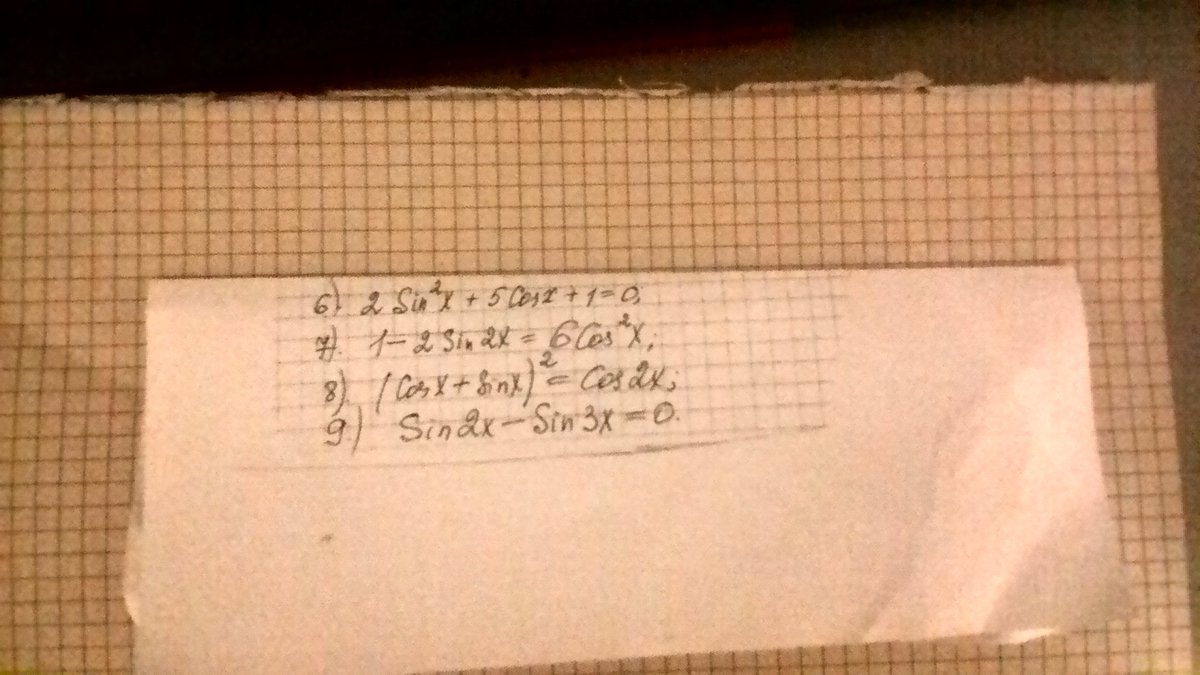 6). 2 Sin²x + 5 Cosx + 1 = 0;
7). 1 - 2 Sin 2x = 6 Cos²x;
8). (Cosx + Sinx)² = Cos 2x;
9.) Sin 2x - Sin 3x = 0.